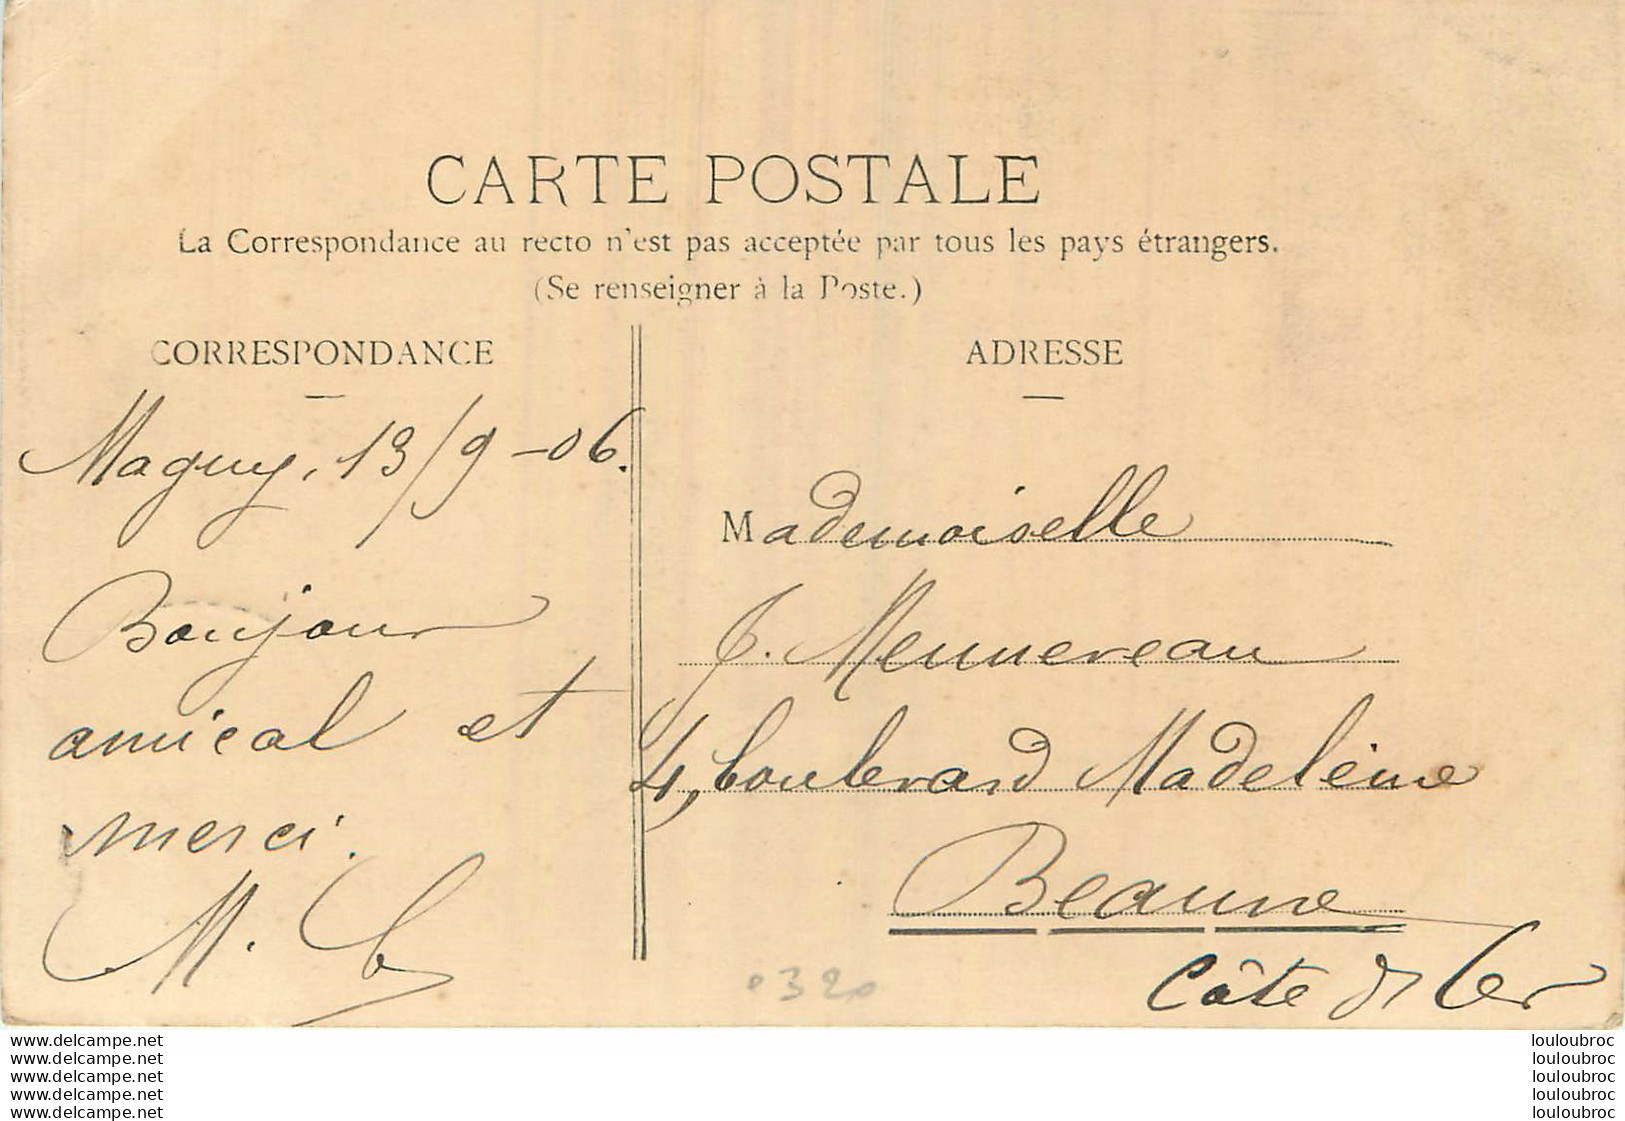 CARTE POSTALE
La Correspondance au recto n'est pas acceptée par tous les pays étrangers.
(Se renseigner à la Poste.)
CORRESPONDANCE
Magny, 13/9-06.
Bonjour
amical et
merci.
M.
ADRESSE
Mademoiselle
J. Mennereau
4, boulevard Madeleine
Beaune
Côte d'Or
0320
www.delcampe.net
www.delcampe.net
www.delcampe.net
www.delcampe.net
www.delcampe.net
louloubroc
louloubroc
louloubroc
louloubroc
louloubroc